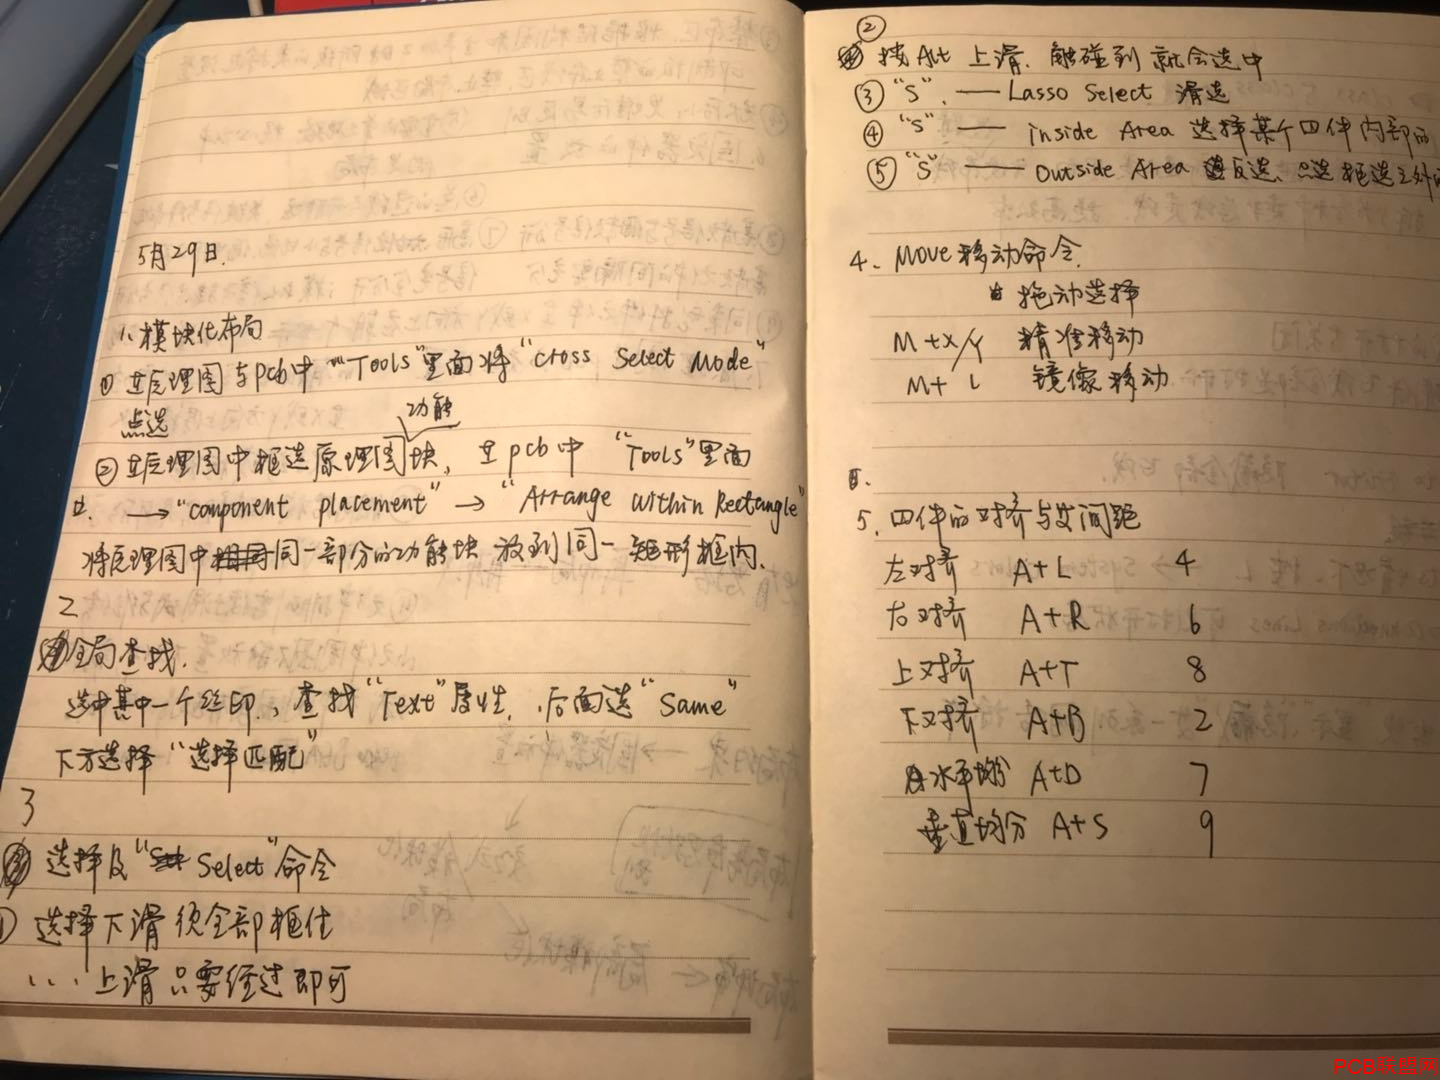 5月29日.
1、模块化布局
① 在原理图与pcb中 "Tools"里面将 "Cross Select Mode"
点选
功能
② 在原理图中框选原理图块, 在pcb中 "Tools"里面
→ "component placement" → "Arrange Within Rectangle"
将原理图中同一部分的功能块 放到同一矩形框内.
2
全局查找.
选中其中一个丝印, 查找 "Text"属性, 后面选 "Same"
下方选择 "选择匹配"
3
选择及 "Select"命令
① 选择下滑 须全部框住
.... 上滑 只要经过即可
②
按Alt 上滑. 触碰到 就会选中
③ "S". — Lasso Select 滑选
④ "S" — inside Area 选择某个四件内部的
⑤ "S" — Outside Area 反选、点选框选之外的
4、Move 移动命令.
拖动选择
M+X/Y 精准移动
M+L 镜像移动
5、四件的对齐与等间距
左对齐 A+L 4
右对齐 A+R 6
上对齐 A+T 8
下对齐 A+B 2
水平均分 A+D 7
垂直均分 A+S 9
PCB联盟网